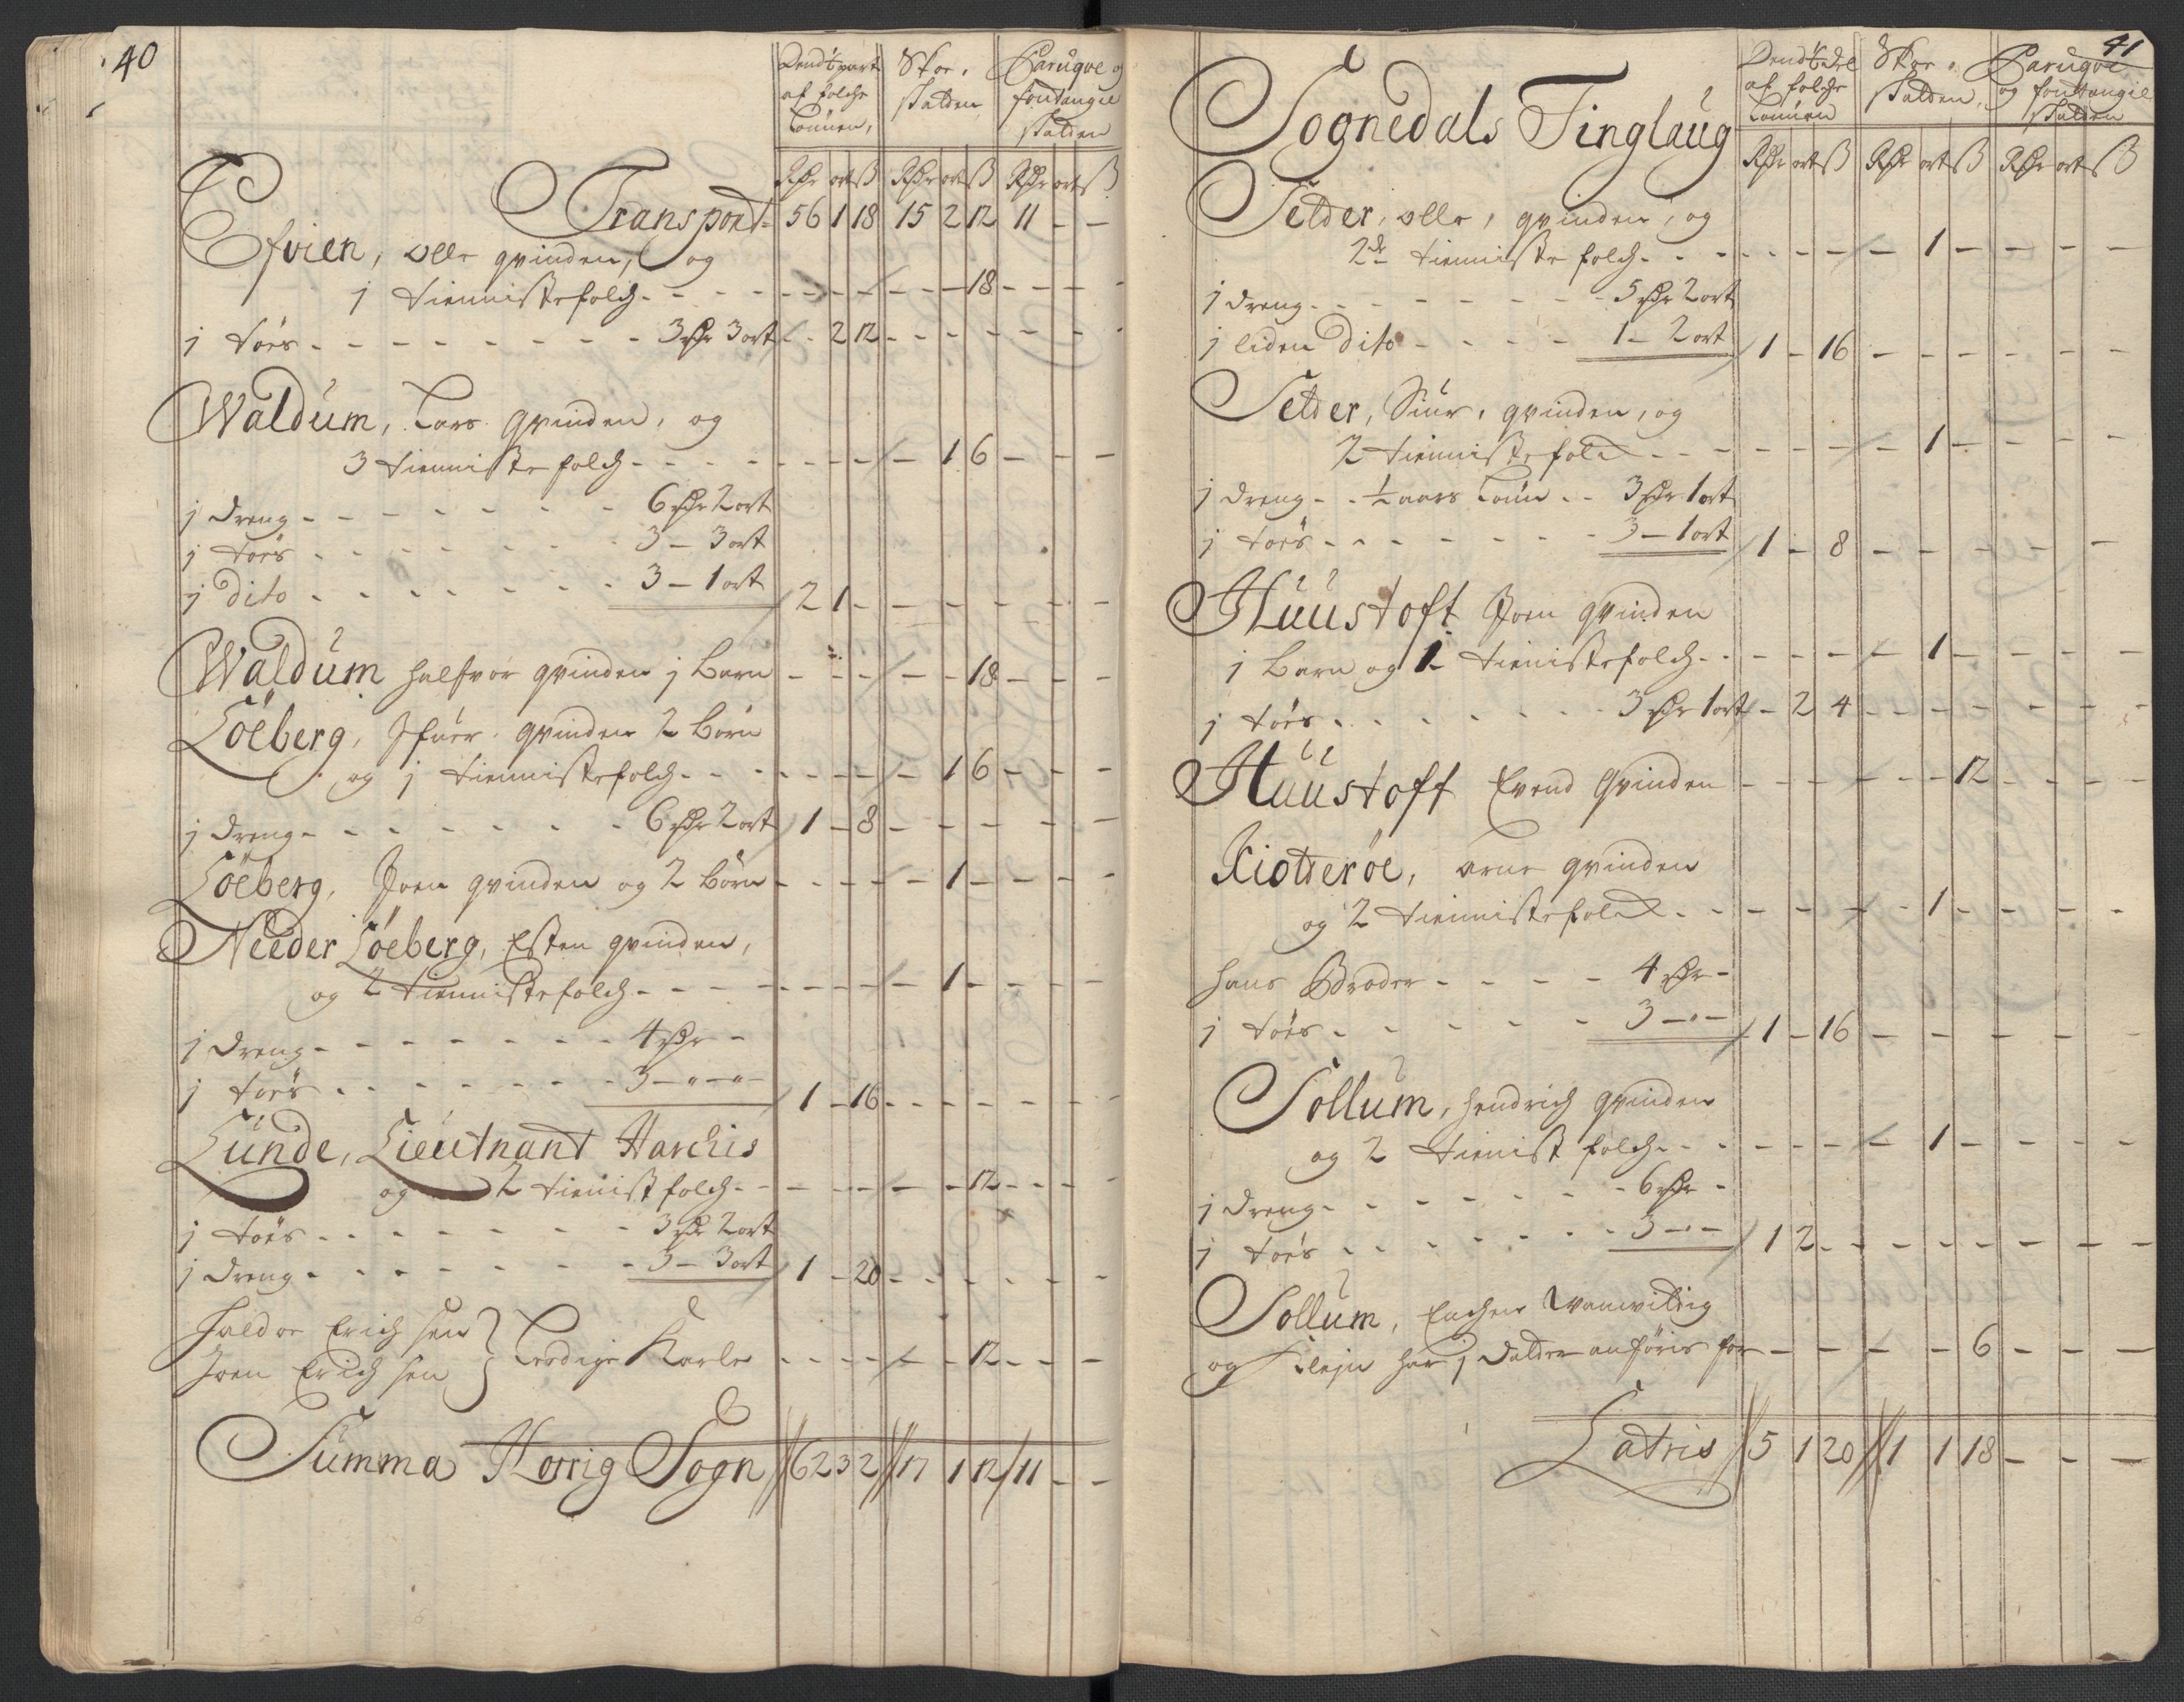 40
Dend 1/6 part af folche Lönnen,
Skoe, skatten
Paruqve og fontangie skatten
Rdr ort ß Rdr ort ß Rdr ort ß
Transport 56 1 18 15 2 12 11 - -
Efvien, olle qvinden, og
1 tienniste folch - - - 18 - - -
j töes - - - 3 Rdr 3 ort - 2 12 - - -
Waldum, Lars qvinden, og
3 tienniste folch - - - 1 6 - - -
j dreng - - - 6 Rdr 2 ort
j töes - - - 3 - 3 ort
j dito - - - 3 - 1 ort 2 1 - - - -
Waldum halfvor qvinden j barn - - - 18 - - -
Löeberg, Ifuer qvinden 2 börn
og j tienniste folch - - - 1 6 - - -
j dreng - - - 6 Rdr 2 ort 1 - 8 - - -
Löeberg, Joen qvinden og 2 börn - - - 1 - - - -
Neder Löeberg, Esten qvinden,
og 2 tienniste folch - - - 1 - - - -
j dreng - - - 4 Rdr -
j töes - - - 3 - - - 1 - 16 - - -
Lunde, Lieutnant Harchis
og 2 tienist folch - - - 12 - - -
j töes - - - 3 Rdr 2 ort
j dreng - - - 3 - 3 ort 1 - 20 - - -
Haldor Erich sen
Joen Erich sen } Leedige Karle - - - 12 - - -
Summa Horrig Sogn 62 3 2 17 1 12 11 - -
41
Sognedals Tinglaug
Dend 1/6 deel af folche Lönnen
Skoe, skatten,
Paruqve og fontangie skatten
Rdr ort ß Rdr ort ß Rdr ort ß
Setder, olle, qvinden, og
2de tienniste folch - - - 1 - - - -
j dreng - - - 5 Rdr 2 ort
j liden dito - - - 1 - 2 ort 1 - 16 - - -
Setder, Siur, qvinden, og
2 tienniste folch - - - 1 - - - -
j dreng - - ½ aars Lönn - - 3 Rdr 1 ort
j töes - - - 3 - 1 ort 1 - 8 - - -
Huustoft Joen qvinden
j barn og 1 tieniste folch - - - 1 - - - -
j töes - - - 3 Rdr 1 ort - 2 4 - - -
Huustoft Evend qvinden - - - 12 - - -
Kiotderöe, arne qvinden
og 2 tienniste folch - - - 1 - - - -
hans Broder - - - 4 Rdr -
j töes - - - 3 - - 1 - 16 - - -
Sollum, hendrich qvinden
og 2 tienist folch - - - 1 - - - -
j dreng - - - 6 Rdr -
j töes - - - 3 - - 1 2 - - - -
Sollum, Enchen Wanwittig
og har j Datder anföris for - - - 6 - - -
Latris 5 1 20 1 1 18 - - -